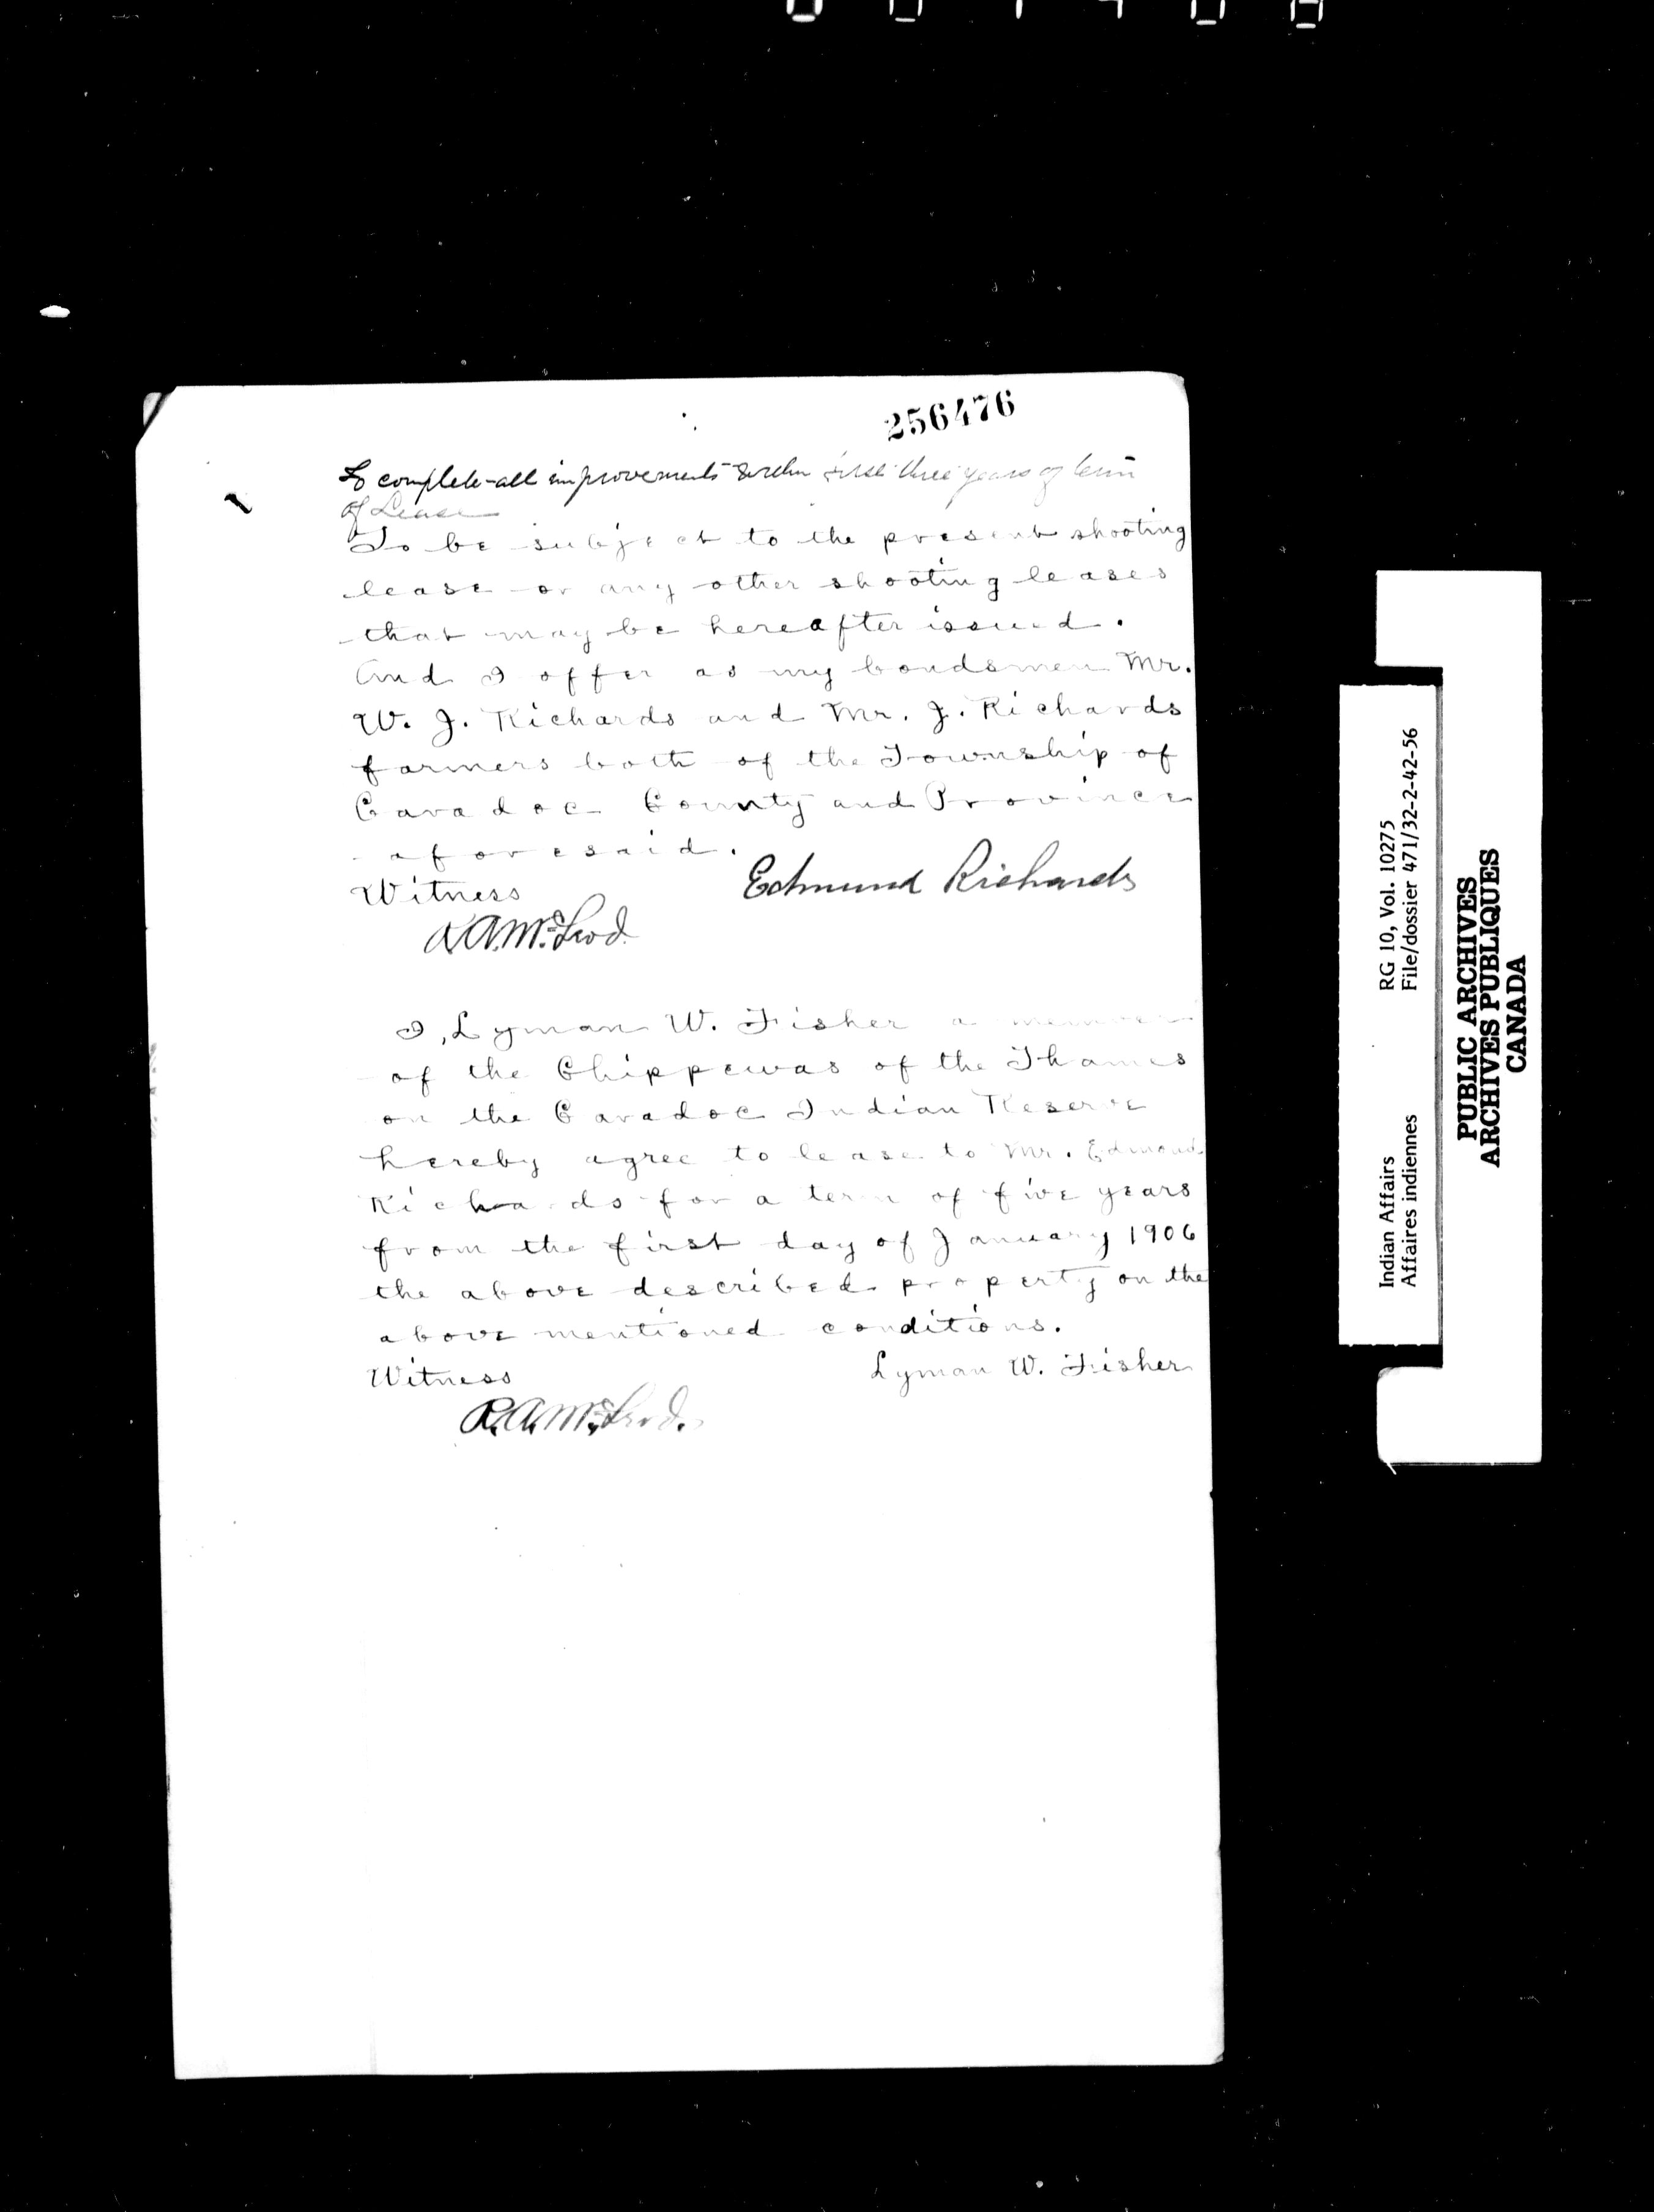 256476
To complete all improvements within first three years of term
of Lease
To be subject to the present shooting
lease or any other shooting leases
that may be hereafter issued.
And I offer as my bondsmen Mr.
W. J. Richards and Mr. J. Richards
farmers both of the Township of
Caradoc County and Province
aforesaid.
Witness Edmund Richards
R.A. McLeod.
I, Lyman W. Fisher a member
of the Chippewas of the Thames
on the Caradoc Indian Reserve
hereby agree to lease to Mr. Edmond
Richards for a term of five years
from the first day of January 1906
the above described property on the
above mentioned conditions.
Witness Lyman W. Fisher
R.A. McLeod.
Indian Affairs RG 10, Vol. 10275
Affaires indiennes File/dossier 471/32-2-42-56
PUBLIC ARCHIVES
ARCHIVES PUBLIQUES
CANADA